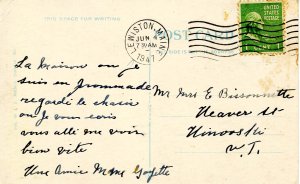 THIS SPACE FOR WRITING
LEWISTON, MAINE
JUN 4
7 30 AM
1947
POSTCARD
UNITED STATES
POSTAGE
La Maison ou je
suis en promenade
regarde le chassi
ou je vous ecris
vous allé me voir
bien vite
Une Amie Mme Goyette
Mr Mrs E Bissonnette
Weaver St
Winooski
V.T.